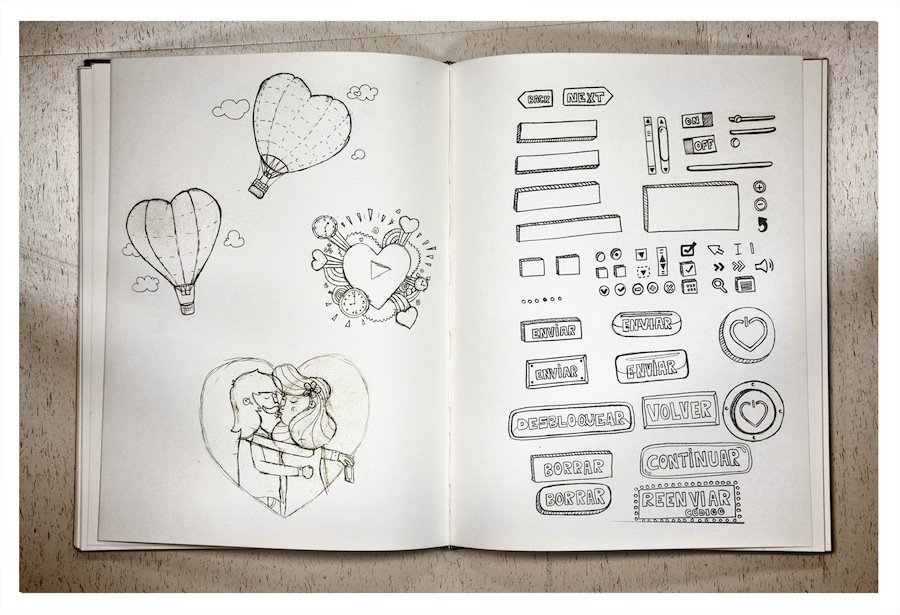 BACK NEXT
ON
OFF
ENVIAR ENVIAR
ENVIAR ENVIAR
DESBLOQUEAR VOLVER
BORRAR CONTINUAR
BORRAR REENVIAR
CÓDIGO